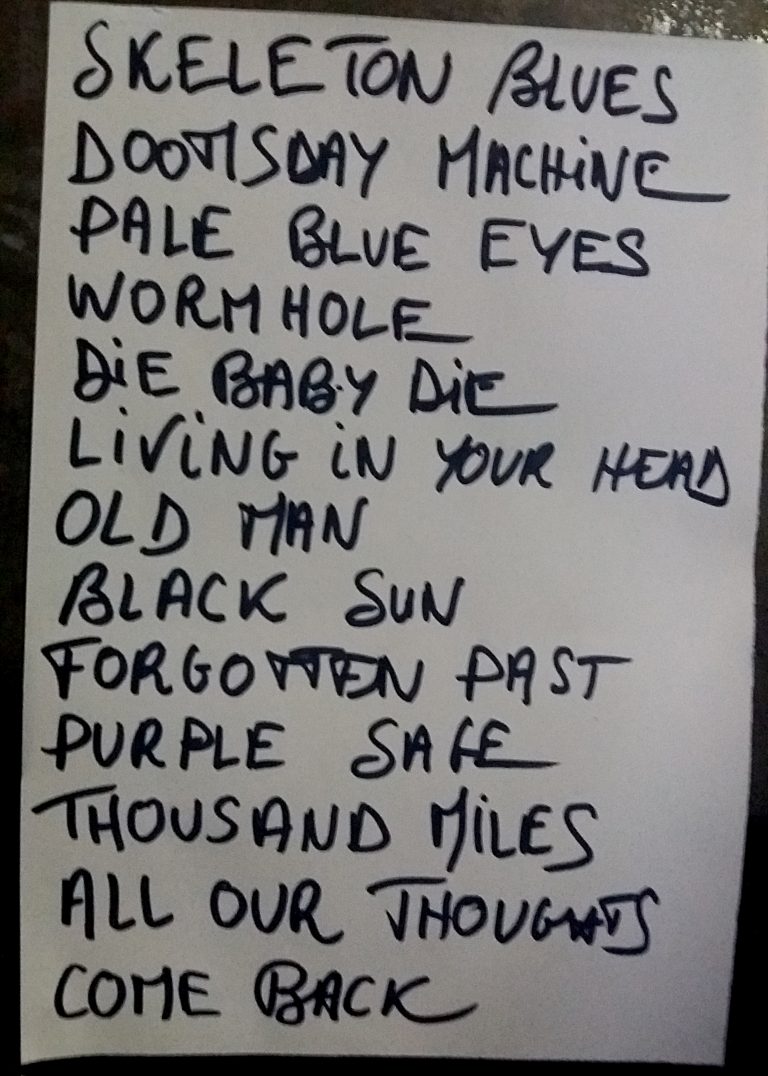 SKELETON BLUES
DOOMSDAY MACHiNE
PALE BLUE EYES
WORMHOLE
DiE BABY DiE
LiViNG iN YOUR HEAD
OLD MAN
BLACK SUN
FORGOTTEN PAST
PURPLE SAGE
THOUSAND MiLES
ALL OUR THOUGHTS
COME BACK